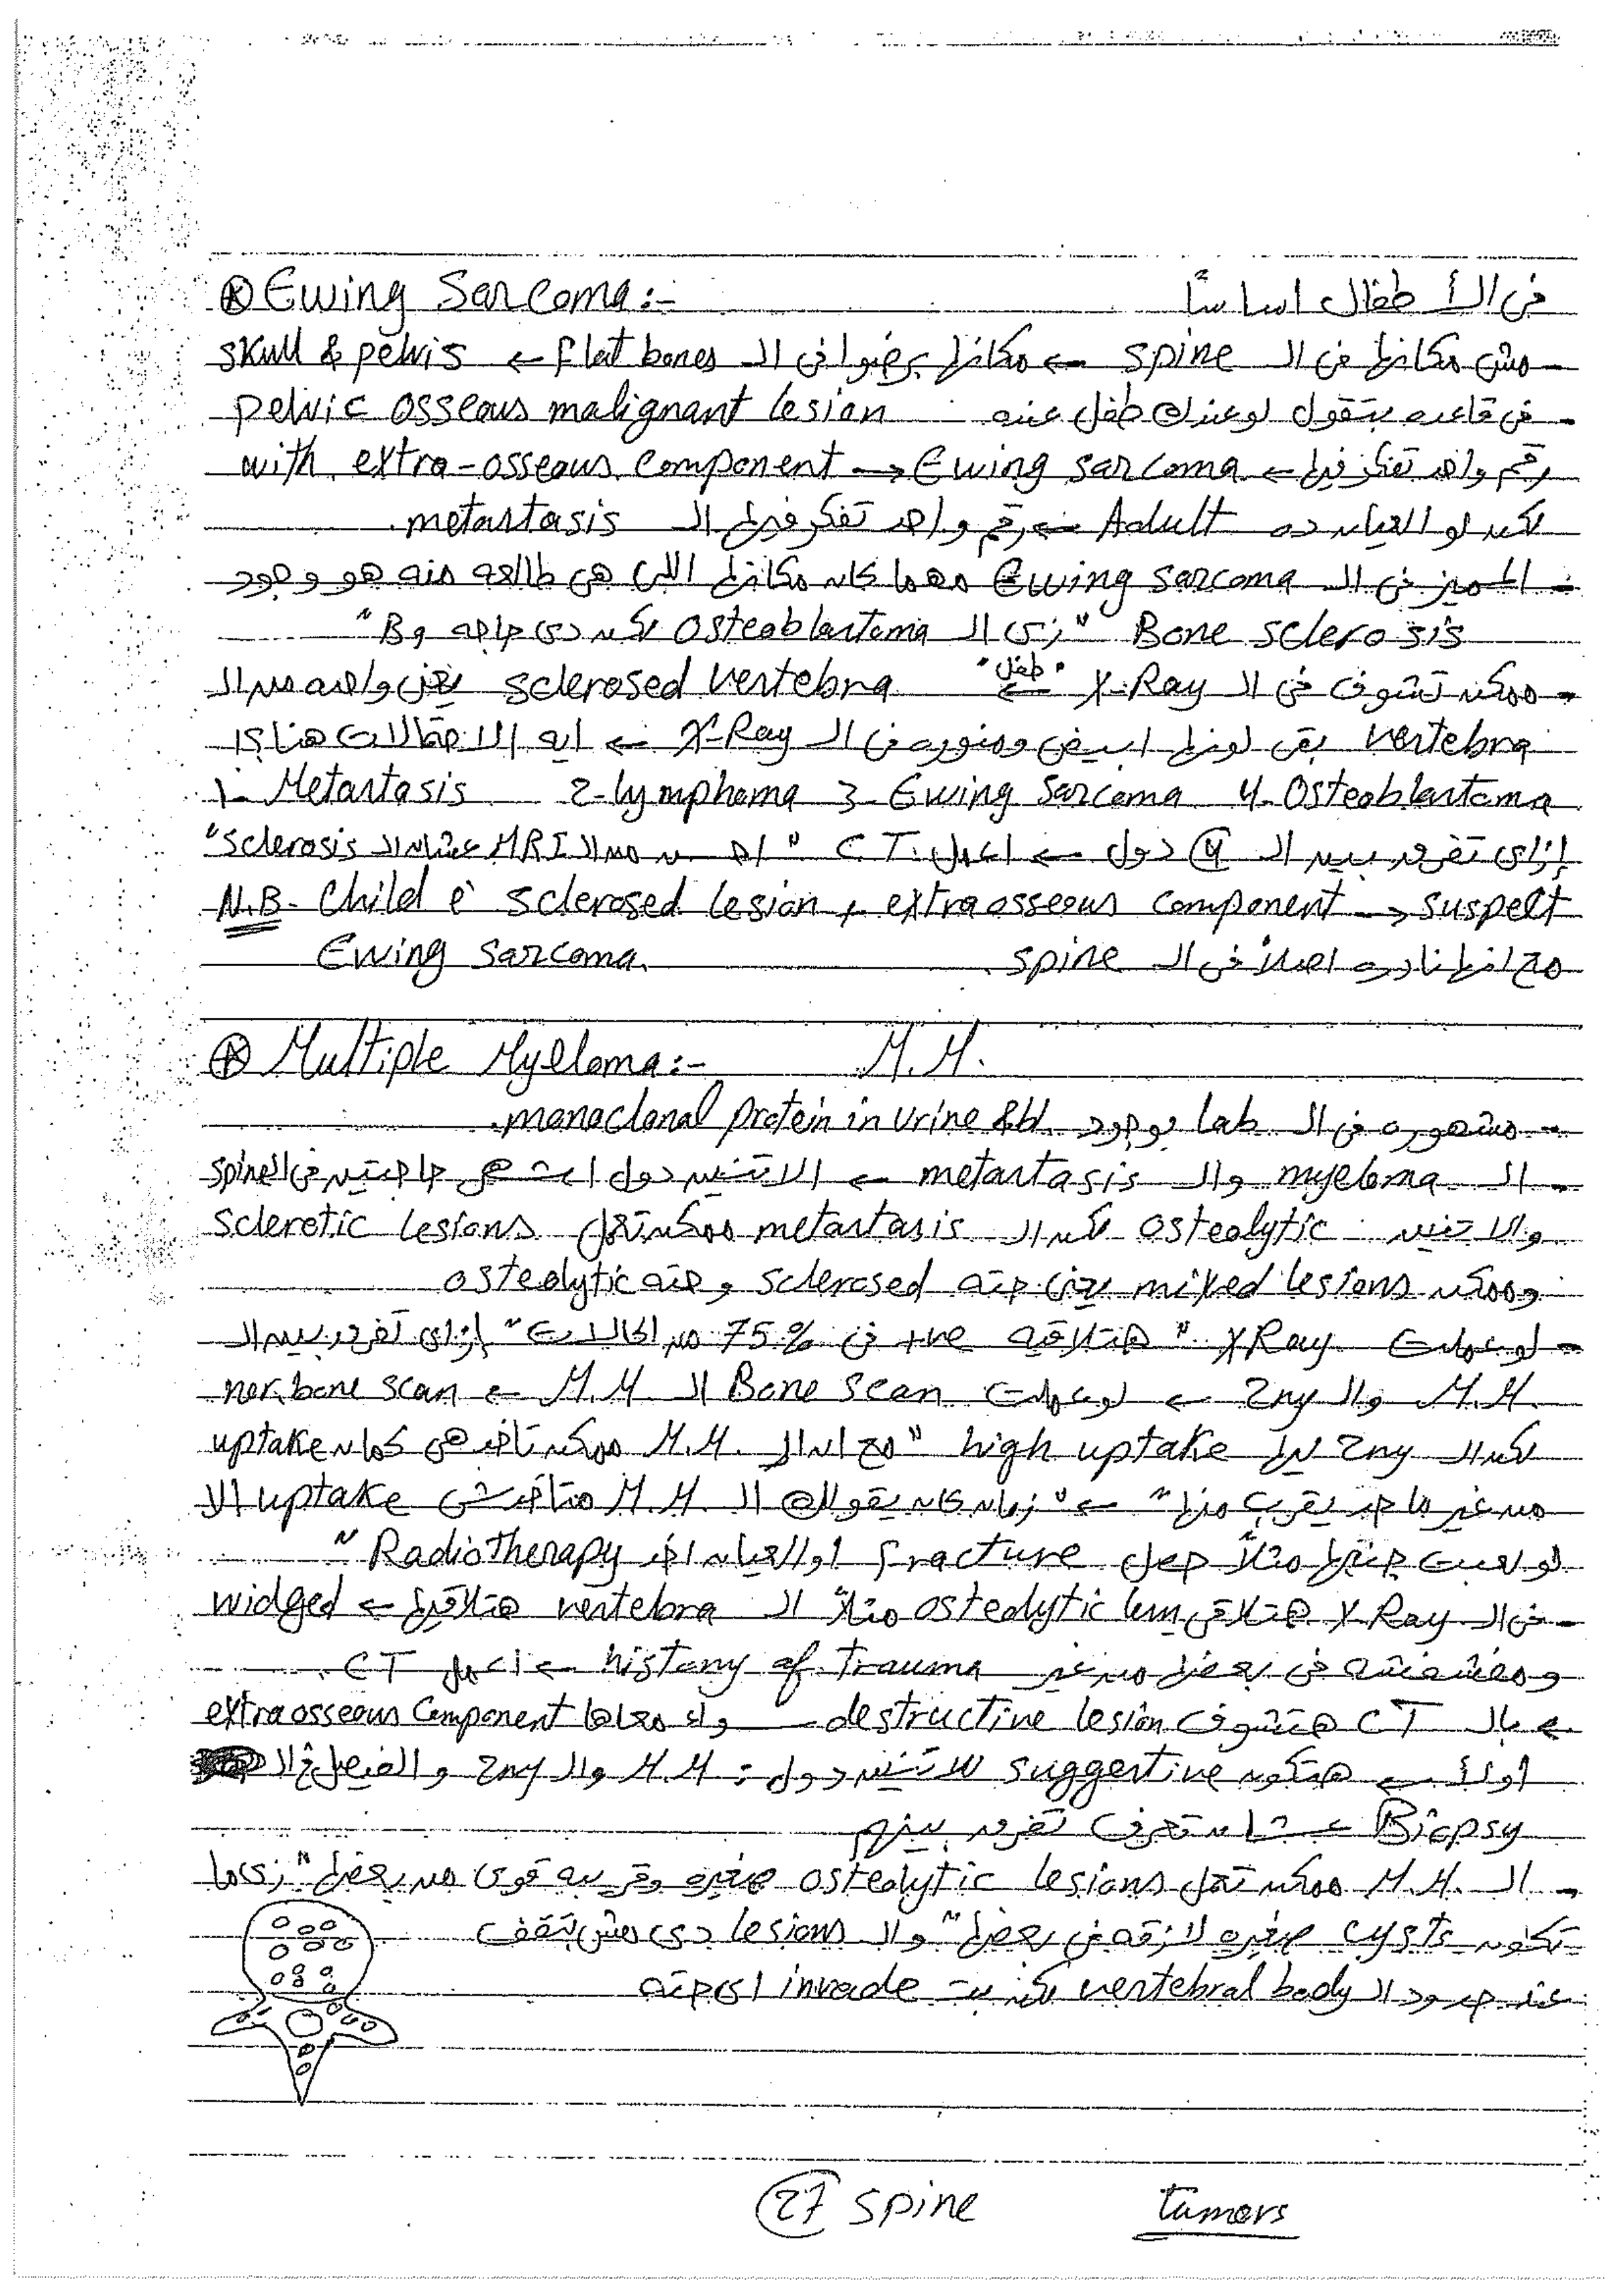 ⊛ Ewing Sarcoma:- فى الأطفال اساساً
- مش مكانها فى الـ spine ← مكانها برضوا فى الـ flat bones ← skull & pelvis
- فى قاعده بتقول لو عندك طفل عنده pelvic osseous malignant lesion
with extra-osseous component → Ewing sarcoma ← رقم واحد تفكر فيها
لكن لو العيان ده Adult ← رقم واحد تفكر فيها الـ metastasis.
- المميز فى الـ Ewing sarcoma مهما كان مكانها اللى هى طالعه منه هو وجود
Bone sclerosis "زى الـ Osteoblastoma لكن دى حاجه و B"
- ممكن تشوف فى الـ X-Ray "طفل" ← sclerosed vertebra يعنى واحده من الـ
vertebra بقى لونها ابيض ومنوره فى الـ X-Ray ← ايه الاحتمالات هنا؟!
1- Metastasis 2-lymphoma 3-Ewing Sarcoma 4-Osteoblastoma
إزاى تفرق بين الـ ④ دول ← اعمل CT. "احسن من الـ MRI عشان الـ sclerosis"
N.B- Child è sclerosed lesion + extraosseous component → suspect
Ewing sarcoma. مع انها نادره اصلاً فى الـ spine.
⊛ Multiple Myeloma:- M.M.
- مشهوره فى الـ lab بوجود monoclonal protein in urine & bl.
- الـ myeloma والـ metastasis ← الاتنين دول اشهر حاجتين فى الـ spine
والاتنين osteolytic لكن الـ metastasis ممكن تعمل scleretic lesions
وممكن mixed lesions يعنى حته sclerosed وحته osteolytic
- لو عملت X Ray "هتلاقيه +ve فى 75% من الحالات" إزاى تفرق بين الـ
M.M. والـ 2ny ← لو عملت Bone scan الـ M.M ← nor. bone scan
لكن الـ 2ny ليها high uptake "مع ان الـ M.M. ممكن تاخد هى كمان uptake
من غير ما حد يقرب منها" ← "زمان كان يقولك الـ M.M. متاخدش uptake الا
لو لعبت جنبها مثلاً حصل fracture او العيان اخد Radiotherapy"
- فى الـ X Ray هتلاقى osteolytic مثلاً الـ vertebra هتلاقيها ← widged
ومفشفشه فى بعضها من غير history of trauma ← اعمل CT.
← بالـ CT هتشوف destructive lesion واء معاها extraosseous component
أولأ ← هتكون suggestive للاتنين دول: M.M والـ 2ny والفيصل الـ
Biopsy عشان تعرف تفرق بينهم
- الـ M.M. ممكن تعمل osteolytic lesions صغيره وقريبه قوى من بعضها "زى ما
تكون cysts صغيره لازقه فى بعضها" والـ lesions دى مش بتقف
عند حدود الـ vertebral body لكن بت invade اى حته
㉗ spine tumors